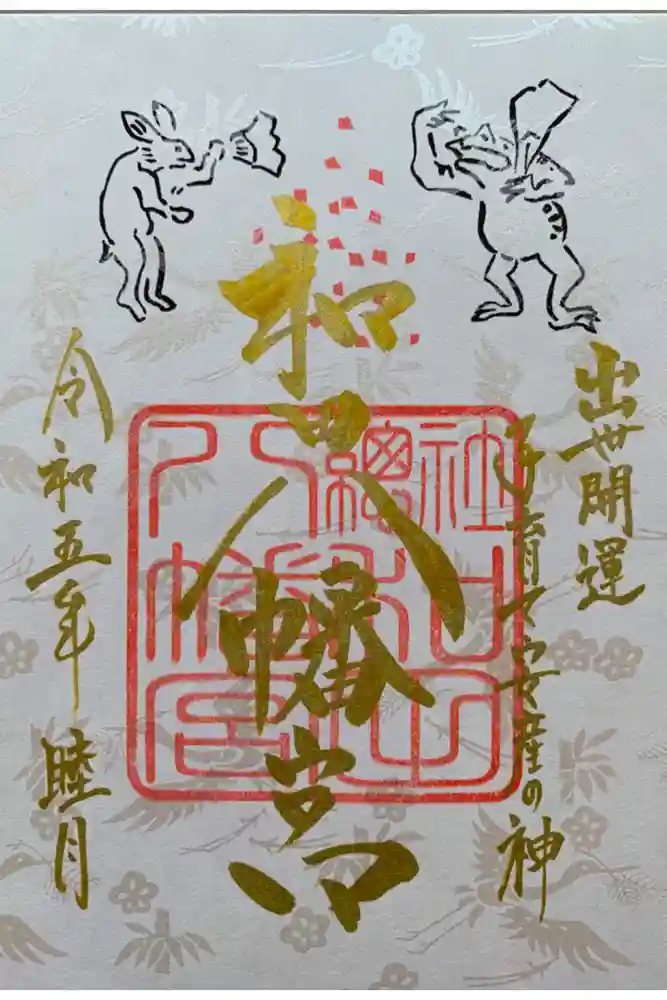 出世開運
子育て安産の神
和田八幡宮
令和五年 睦月